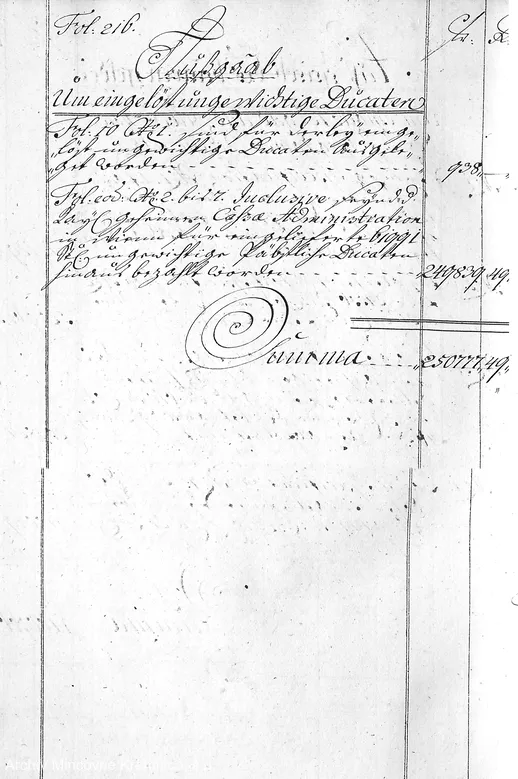 Fol: 216.
fl: K
Außgaab
Um eingelöst ungewichtige Ducaten
Fol: 10 N: 1. sind für derley einge-
löst ungewichtige Ducaten ausgele-
get worden 938,,—,,
Fol: eod: N: 2. bis 7. Inclusive seynd
Kays: geheimen Cassæ Administration
in Wienn für eingelieferte 61991
Stk: ungewichtige Päbstliche Ducaten
hinaus bezahlt worden. 249839,,49,,
Summa 250777,,49,,